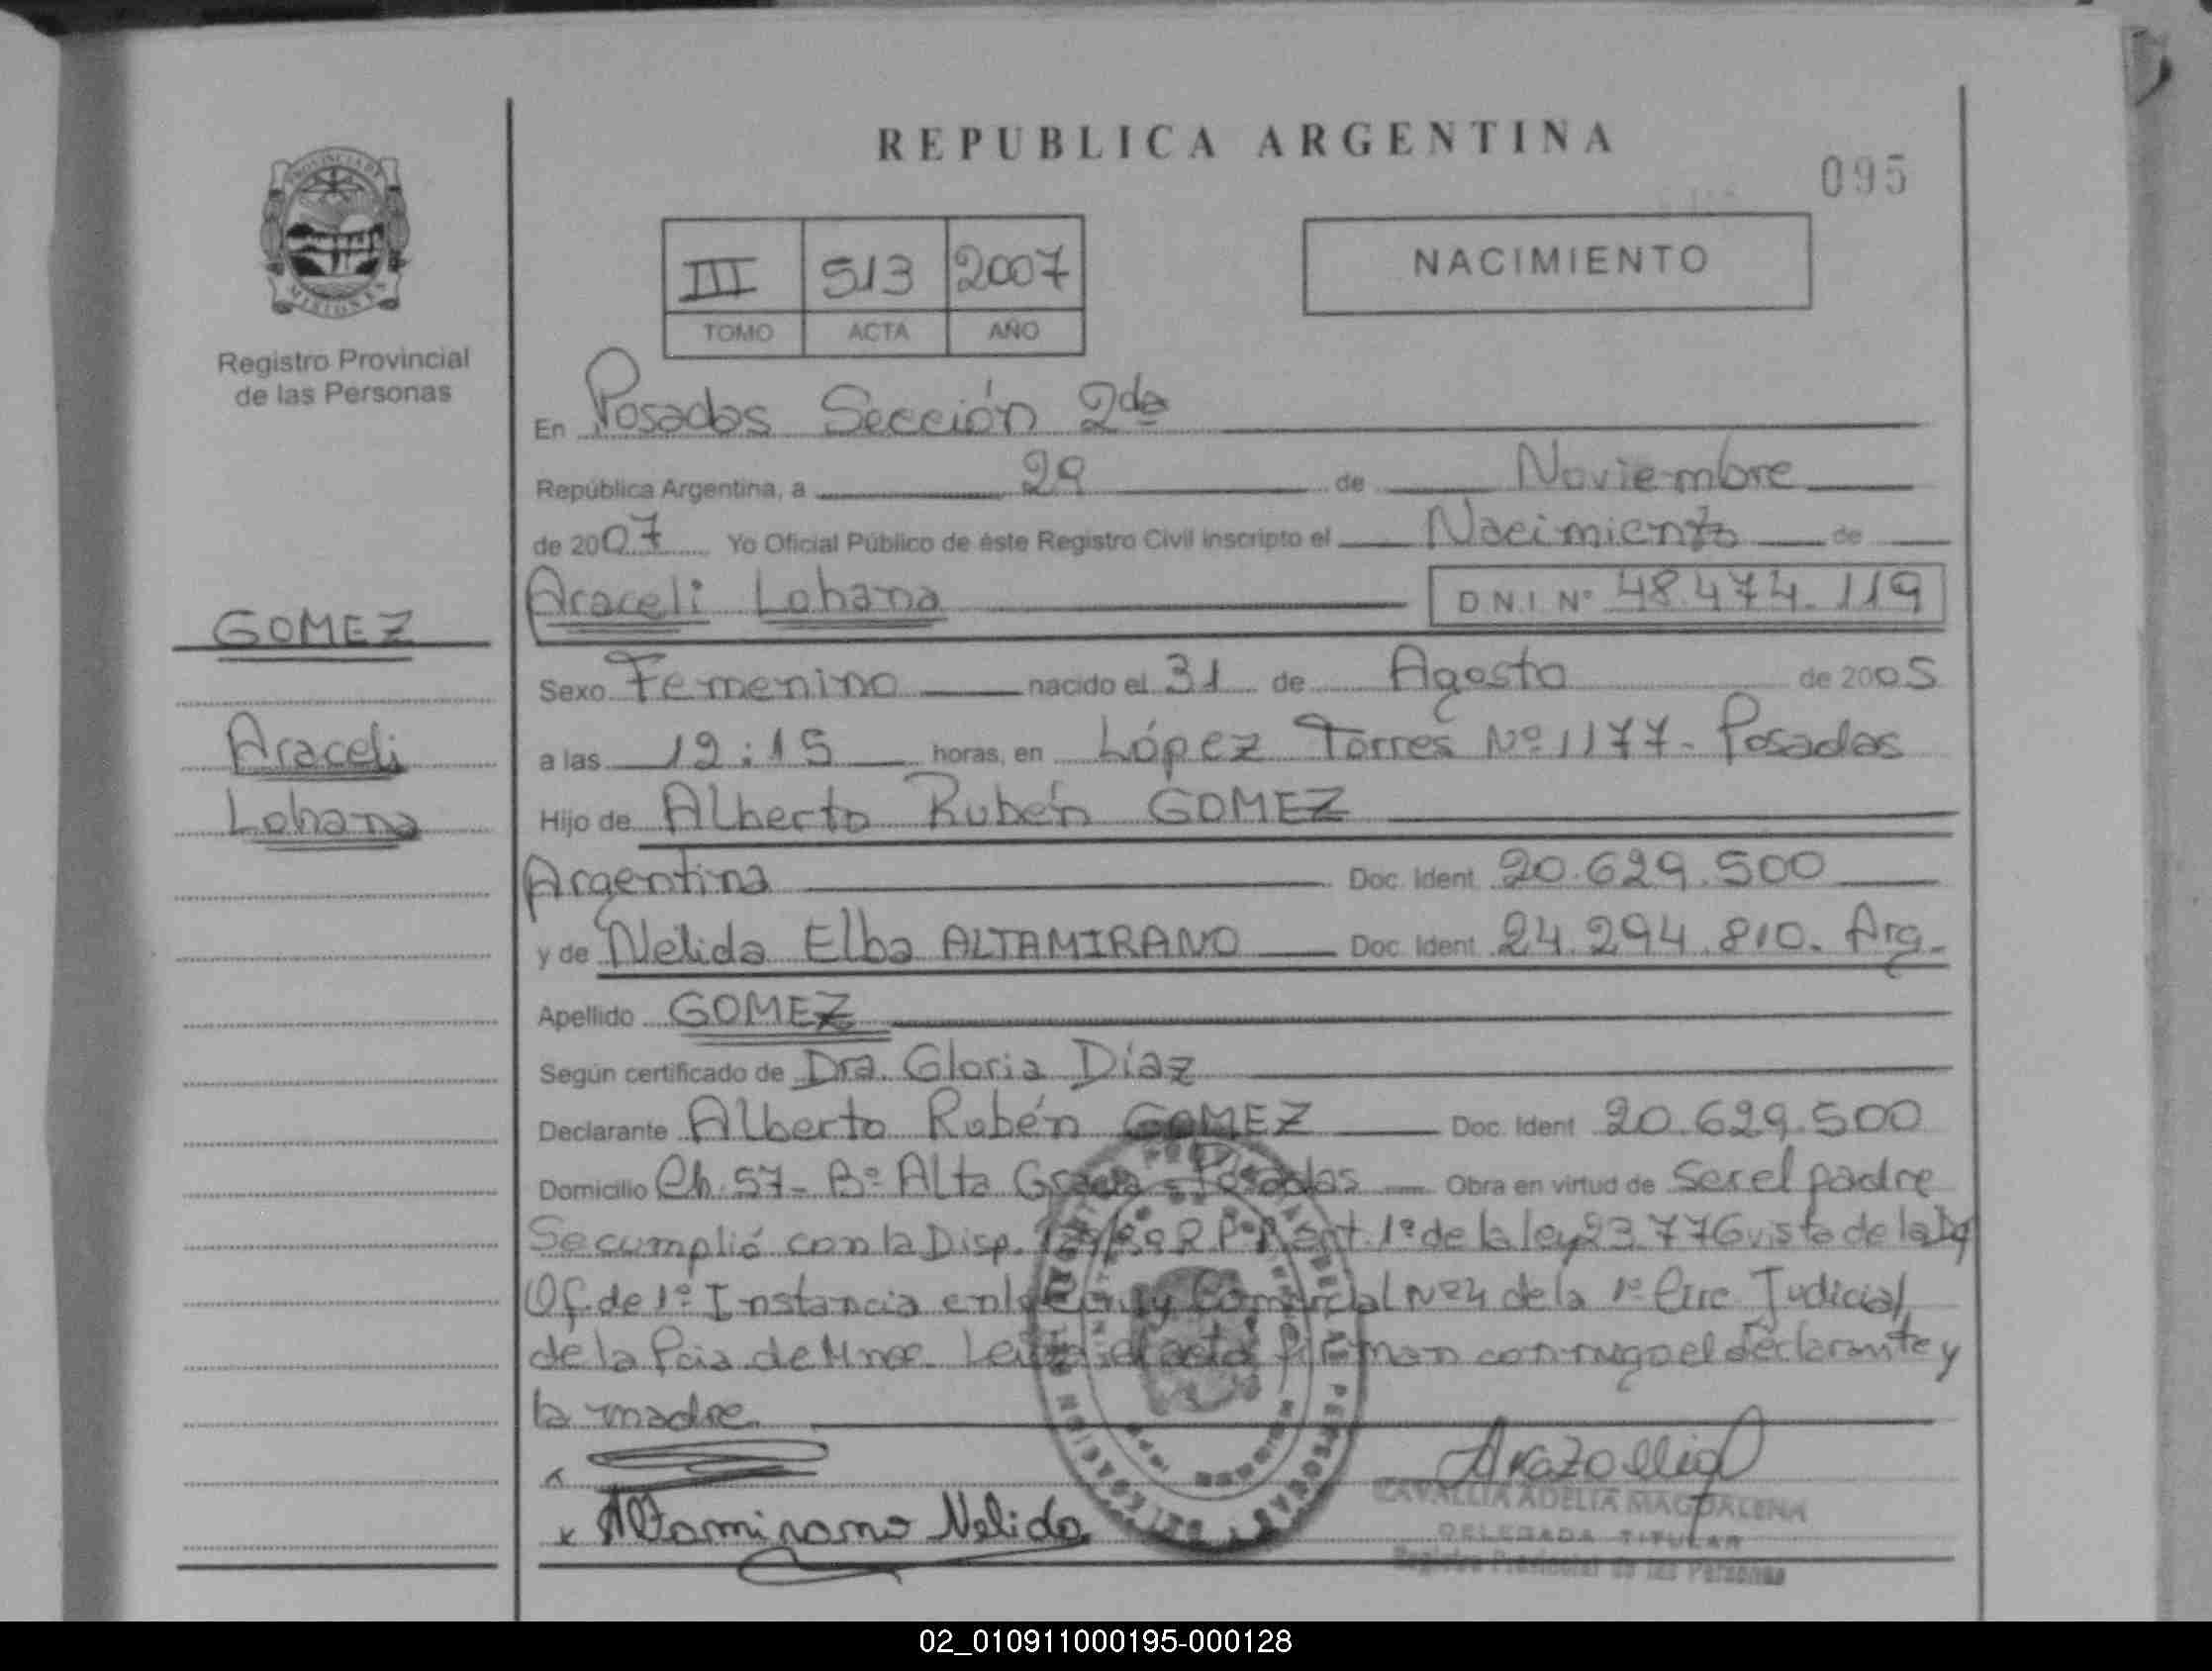 REPUBLICA ARGENTINA
095
PROVINCIA DE
MISIONES
Registro Provincial
de las Personas
III 513 2007
TOMO ACTA AÑO
NACIMIENTO
En Posadas Sección 2da
República Argentina, a 29 de Noviembre
de 2007 Yo Oficial Público de éste Registro Civil Inscripto el Nacimiento de
Araceli Lohana D N.I. Nº 48.474.119
GOMEZ
Araceli
Lohana
Sexo Femenino nacido el 31 de Agosto de 2005
a las 12:15 horas, en López Torres Nº 1177- Posadas
Hijo de Alberto Rubén GOMEZ
Argentina Doc. Ident. 20.629.500
y de Nelida Elba ALTAMIRANO Doc. Ident. 24.294.810. Arg.
Apellido GOMEZ
Según certificado de Dra. Gloria Díaz
Declarante Alberto Rubén GOMEZ Doc. Ident. 20.629.500
Domicilio Ch. 57- Bº Alta Gracia - Posadas Obra en virtud de Ser el padre
Se cumplió con la Disp. art. 1º de la ley 23.776 vista de la
Of. de 1º Instancia en lo Comercial Nº 4 de la 1º Circ. Judicial
de la Pcia de Mnes. Leída el acta firman conmigo el declarante y
la madre.
x
x Altamirano Nelida
CAVALLIA ADELIA MAGDALENA
DELEGADA TITULAR
Registro Provincial de las Personas
02_010911000195-000128